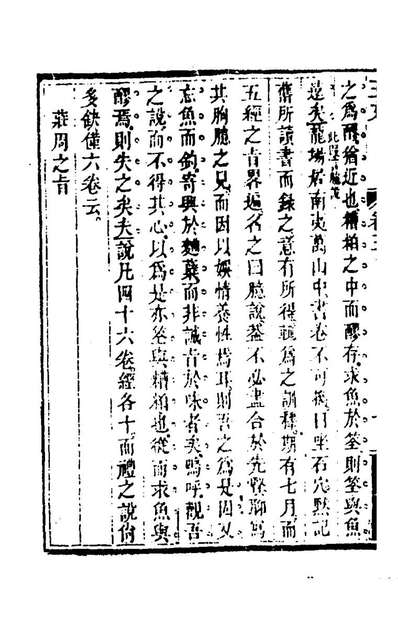 之爲醪猶近也糟粕之中而醪存求魚於筌則筌與魚
遠矣龍塲居南夷萬山中書卷不可攜日坐石穴默記
舊所讀書而錄之意有所得輒爲之訓釋期有七月而
五經之旨畧遍名之曰臆說葢不必盡合於先賢聊寫
其胸臆之見而因以娛情養性焉耳則吾之爲是固又
忘魚而釣寄興於麯糵而非誠旨於味者矣嗚呼觀吾
之說而不得其心以爲是亦筌與糟粕也從而求魚與
醪焉則失之矣夫說凡四十六卷經各十而禮之說尚
多缺僅六卷云
莊周之旨